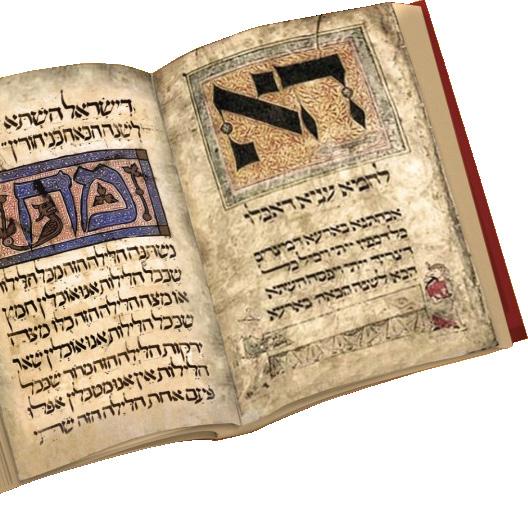 הא
לחמא עניא דאכלו
אבהתנא בארעא דמצרים
כל דכפין ייתי ויכול כל
דצריך ייתי ויפסח השתא
הכא לשנה הבאה בארעא
דישראל השתא
לשנה הבאה בני חורין
מה
נשתנה הלילה הזה מכל הלילות
שבכל הלילות אנו אוכלין חמץ
או מצה הלילה הזה כלו מצה
שבכל הלילות אנו אוכלין שאר
ירקות הלילה הזה מרור שבכל
הלילות אין אנו מטבלין אפלו
פעם אחת הלילה הזה שתי